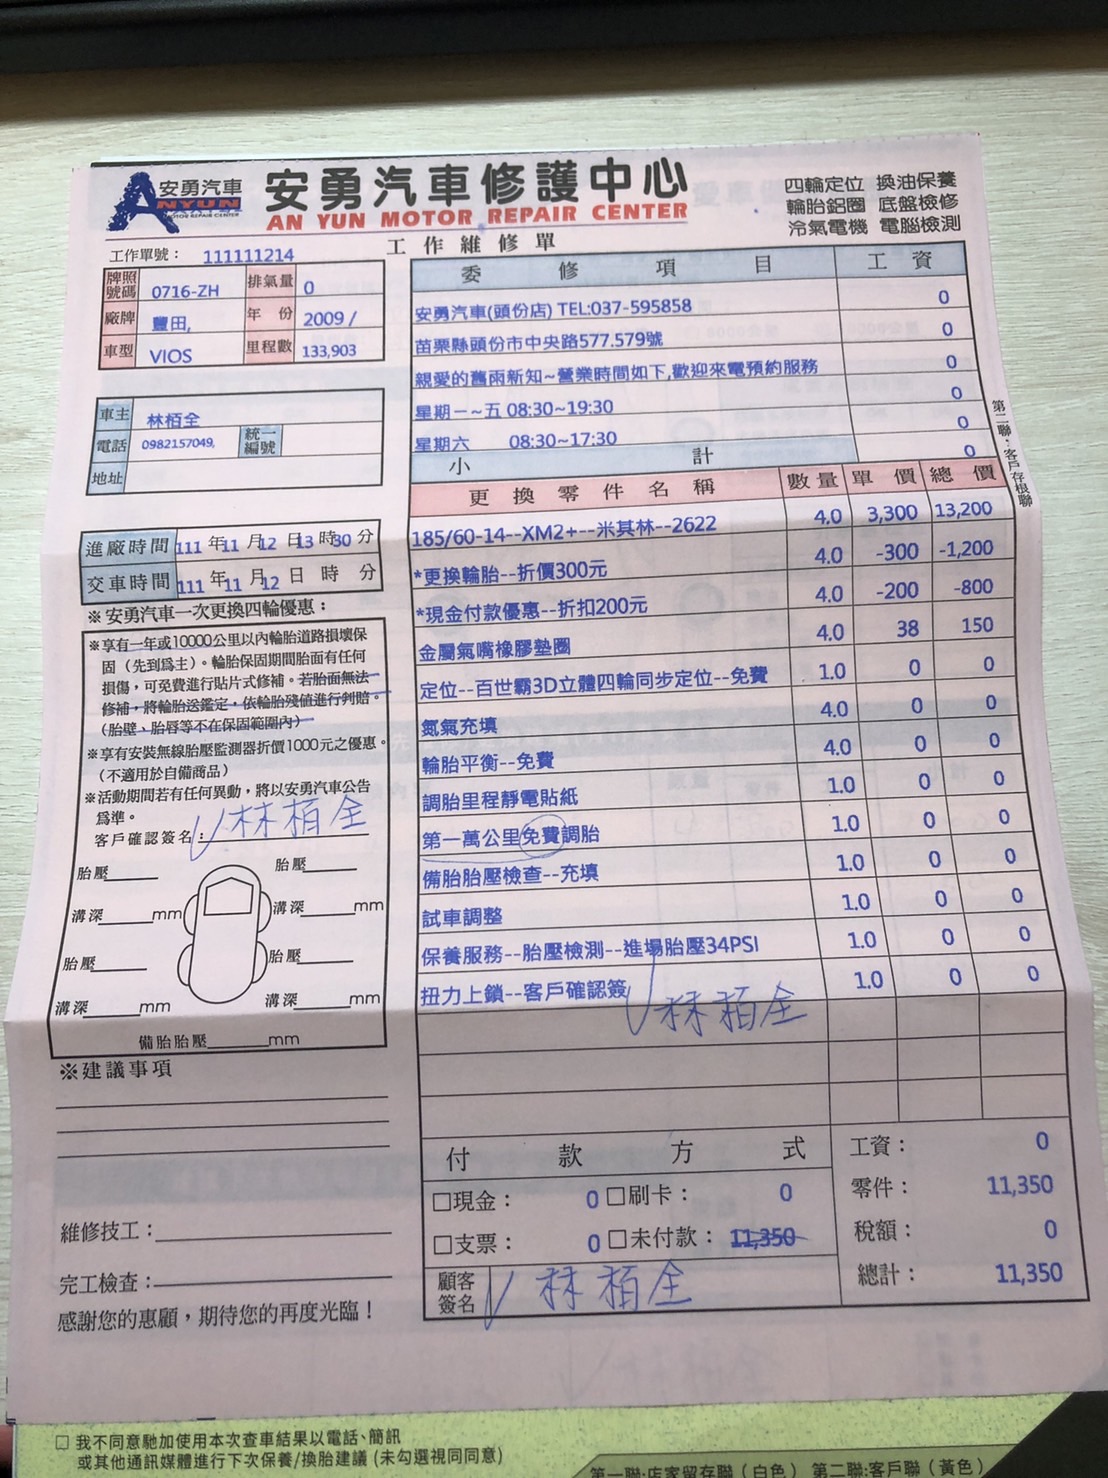 安勇汽車
ANYUN
MOTOR REPAIR CENTER
安勇汽車修護中心
AN YUN MOTOR REPAIR CENTER
四輪定位 換油保養
輪胎鋁圈 底盤檢修
冷氣電機 電腦檢測
工作維修單
工作單號： 111111214
牌照號碼 0716-ZH 排氣量 0
廠牌 豐田, 年份 2009 /
車型 VIOS 里程數 133,903
車主 林栢全
電話 0982157049, 統一編號
地址
進廠時間 111 年 11 月 12 日 13 時 30 分
交車時間 111 年 11 月 12 日 時 分
※安勇汽車一次更換四輪優惠：
※享有一年或10000公里以內輪胎道路損壞保
固（先到為主）。輪胎保固期間胎面有任何
損傷，可免費進行貼片式修補。若胎面無法
修補，將輪胎送鑑定，依輪胎殘值進行判賠。
（胎壁、胎唇等不在保固範圍內）
※享有安裝無線胎壓監測器折價1000元之優惠。
（不適用於自備商品）
※活動期間若有任何異動，將以安勇汽車公告
為準。
客戶確認簽名： 林栢全
胎壓 胎壓
溝深 mm 溝深 mm
胎壓 胎壓
溝深 mm 溝深 mm
備胎胎壓 mm
※建議事項
維修技工：
完工檢查：
感謝您的惠顧，期待您的再度光臨！
委修項目 工資
安勇汽車(頭份店) TEL:037-595858 0
苗栗縣頭份市中央路577.579號 0
親愛的舊雨新知~營業時間如下,歡迎來電預約服務 0
星期一~五 08:30~19:30 0
星期六 08:30~17:30 0
小計 0
更換零件名稱 數量 單價 總價
185/60-14--XM2+--米其林--2622 4.0 3,300 13,200
*更換輪胎--折價300元 4.0 -300 -1,200
*現金付款優惠--折扣200元 4.0 -200 -800
金屬氣嘴橡膠墊圈 4.0 38 150
定位--百世霸3D立體四輪同步定位--免費 1.0 0 0
氮氣充填 4.0 0 0
輪胎平衡--免費 4.0 0 0
調胎里程靜電貼紙 1.0 0 0
第一萬公里免費調胎 1.0 0 0
備胎胎壓檢查--充填 1.0 0 0
試車調整 1.0 0 0
保養服務--胎壓檢測--進場胎壓34PSI 1.0 0 0
扭力上鎖--客戶確認簽 1.0 0 0
林栢全
付款方式
□現金： 0 □刷卡： 0
□支票： 0 □未付款： 11,350
顧客簽名 林栢全
工資： 0
零件： 11,350
稅額： 0
總計： 11,350
第二聯：客戶存根聯
□ 我不同意馳加使用本次查車結果以電話、簡訊
或其他通訊媒體進行下次保養/換胎建議 (未勾選視同同意)
第一聯:店家留存聯（白色） 第二聯:客戶聯（黃色）